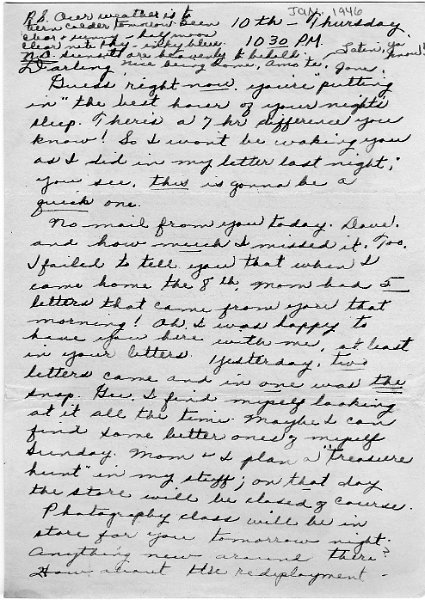 P.S. Our weather is to
turn colder tomorrow. Been
clear & sunny - half moon
clear nite sky - inky blue.
N.C. sunsets are heavenly to behold.
Nice being home, Amo te, Jane.
Later, ya
know!
JAN. 1946
10th - Thursday
10 30 PM.
Darling,
Guess right now, you're "putting
in" the best hour of your nights
sleep. There's a 7 hr difference you
know! So I won't be waking you
as I did in my letter last night;
you see, this is gonna be a
quick one.
No mail from you today, Dave,
and how much I missed it. Too,
I failed to tell you that when I
came home the 8th, Mom had 5
letters that came from you that
morning! Oh, I was happy to
have you here with me, at least
in your letters. Yesterday, two
letters came and in one was the
snap. Gee, I find myself looking
at it all the time. Maybe I can
find some better ones of myself
Sunday. Mom & I plan a "treasure
hunt" in my stuff; on that day
the store will be closed of course.
Photography class will be in
store for you tomorrow night.
Anything new around there?
How about the redployment -